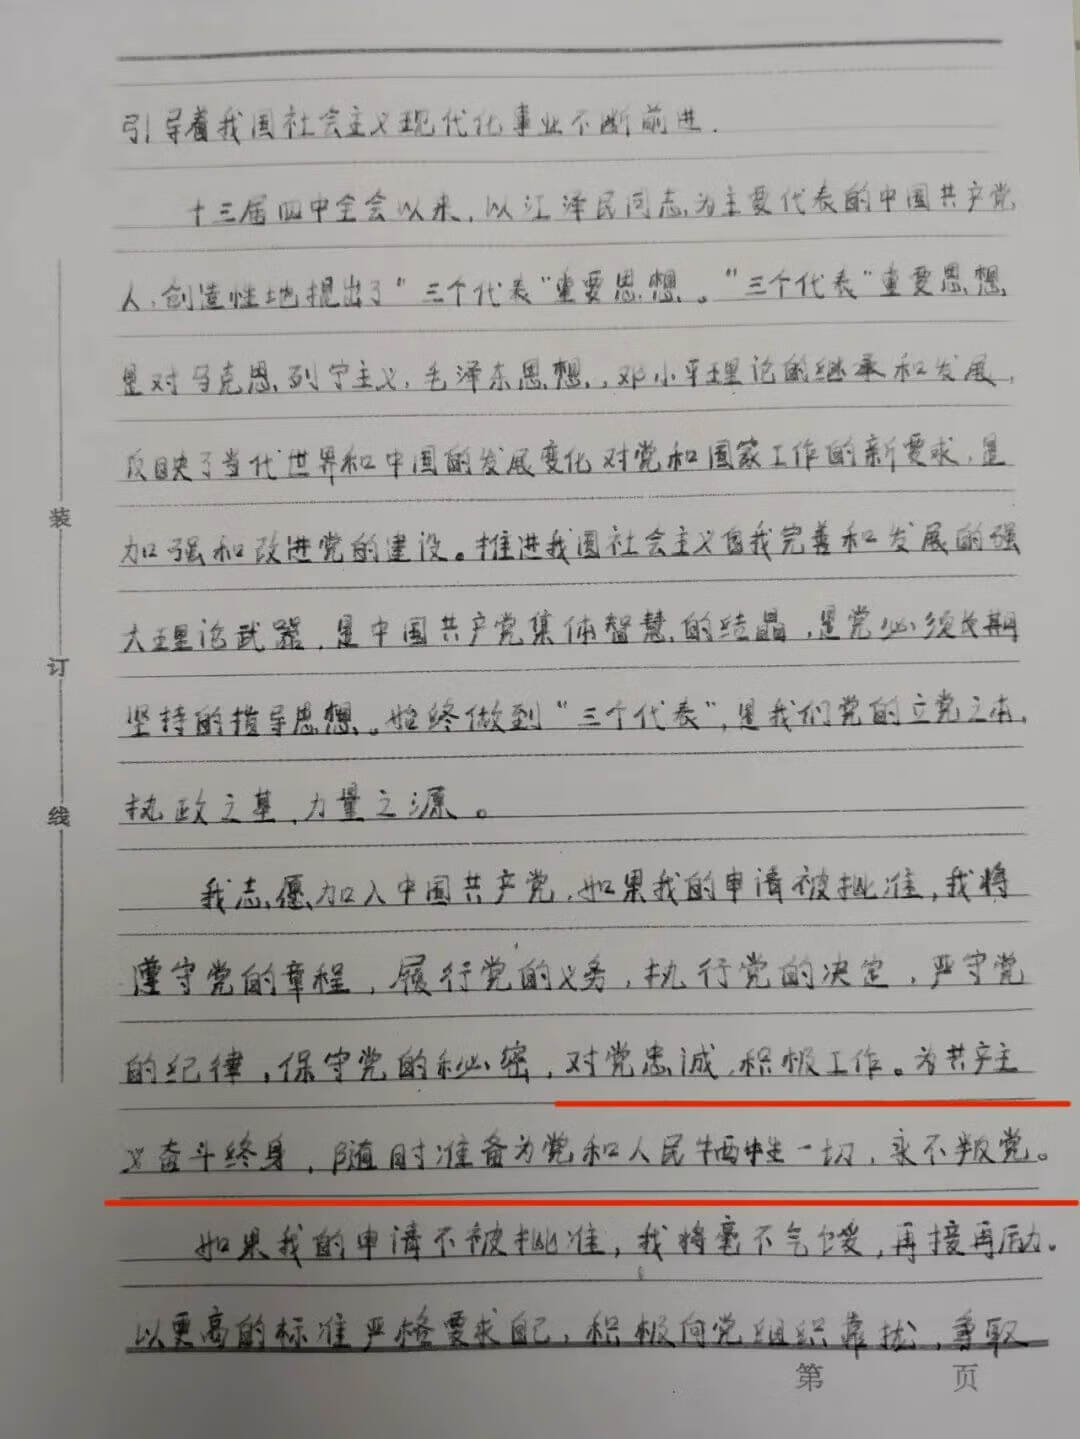 引导着我国社会主义现代化事业不断前进.
十三届四中全会以来,以江泽民同志为主要代表的中国共产党
人,创造性地提出了“三个代表”重要思想。“三个代表”重要思想
是对马克思列宁主义,毛泽东思想,邓小平理论的继承和发展,
反映了当代世界和中国的发展变化对党和国家工作的新要求,是
加强和改进党的建设。推进我国社会主义自我完善和发展的强
大理论武器,是中国共产党集体智慧的结晶,是党必须长期
坚持的指导思想。始终做到“三个代表”,是我们党的立党之本,
执政之基,力量之源。
我志愿加入中国共产党,如果我的申请被批准,我将
遵守党的章程,履行党的义务,执行党的决定,严守党
的纪律,保守党的秘密,对党忠诚,积极工作。为共产主
义奋斗终身,随时准备为党和人民牺牲一切,永不叛党。
如果我的申请不被批准,我将毫不气馁,再接再厉。
以更高的标准严格要求自己,积极向党组织靠拢,争取
第 页
装
订
线